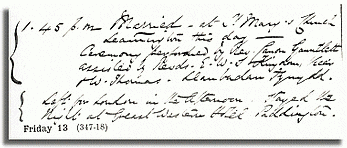 1.45 p.m Married - at St Mary's Church
Leamington this day -
Ceremony performed by Rev. Canon
assisted by Revds. E. W. S. Kingdon, Vicar
& W. Thomas - Llanbadarn Fynydd.
Left for London in the Afternoon. Stayed the
Night at Great Western Hotel Paddington.
Friday 13 (347-18)